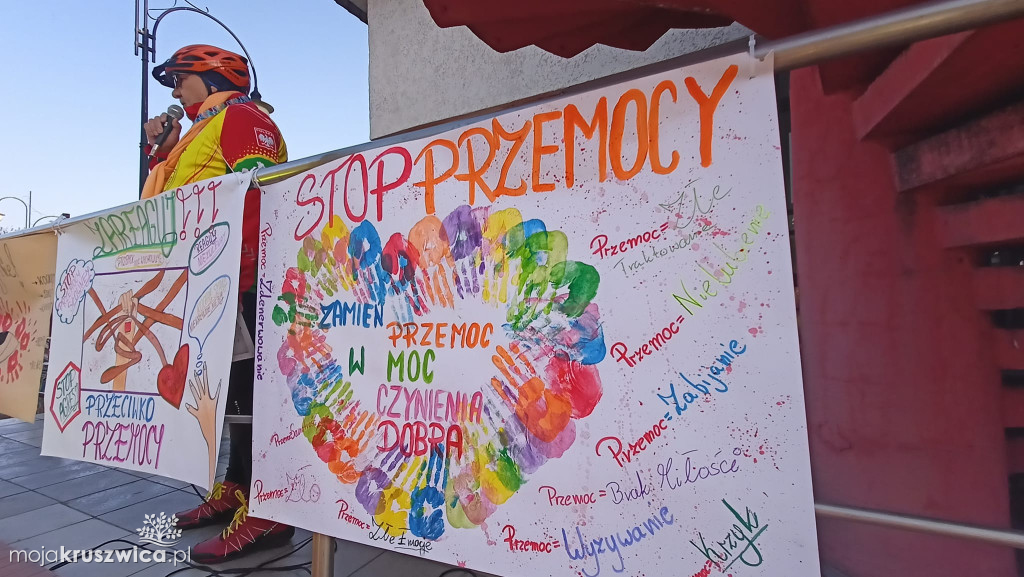 STOP PRZEMOCY
ZAMIEŃ
PRZEMOC
W MOC
CZYNIENIA
DOBRA
Przemoc = Zdenerwowanie
Przemoc = Złe
Traktowanie
Przemoc = Nielubienie
Przemoc = Zabijanie
Przemoc = Brak Miłości
Przemoc = Wyzywanie
Przemoc = Krzyk
Przemoc = Zło
Przemoc =
Złe Emocje
ZAREAGUJ!!!
STOP
PRZECIWKO
PRZEMOCY
mojakruszwica.pl